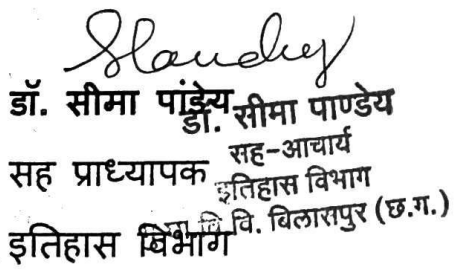 डॉ. सीमा पांडेय
सह प्राध्यापक
इतिहास विभाग
डॉ. सीमा पाण्डेय
सह-आचार्य
इतिहास विभाग
वि. विलासपुर (छ.ग.)